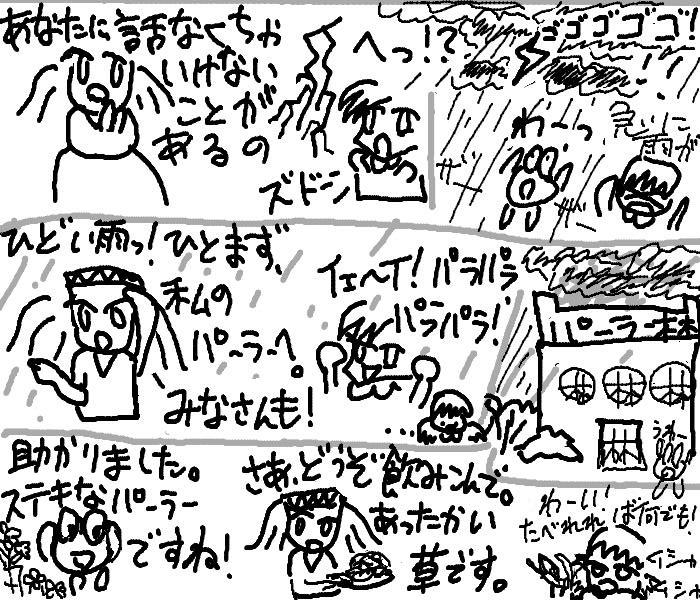 あなたに話なくちゃ
いけない
ことが
あるの
へっ!?
ズドーン
ゴゴゴゴゴ!!
わーっ
急に
雨が
ひどい雨っ!ひとまず、
私の
パーラーへ。
みなさんも!
イェーイ!パラパラ
パラパラ!
・・・
パーラー
うわー
助かりました。
ステキなパーラー
ですね!
さあ、どうぞ飲みこんで。
あったかい
草です。
わーい!
たべれれば何でも!